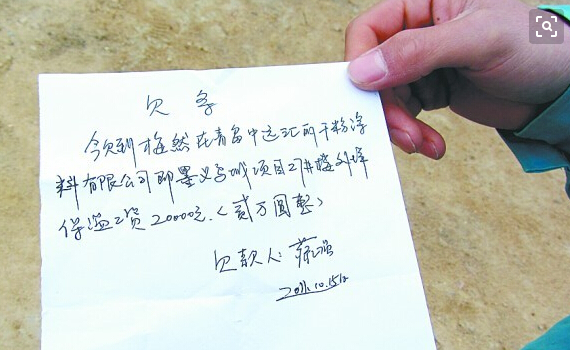 欠条
今欠到 在青岛中远汇丽干粉涂
料有限公司即墨义乌城项目27#楼外墙
保温工资20000元.(贰万圆整)
欠款人:
2011.10.15日